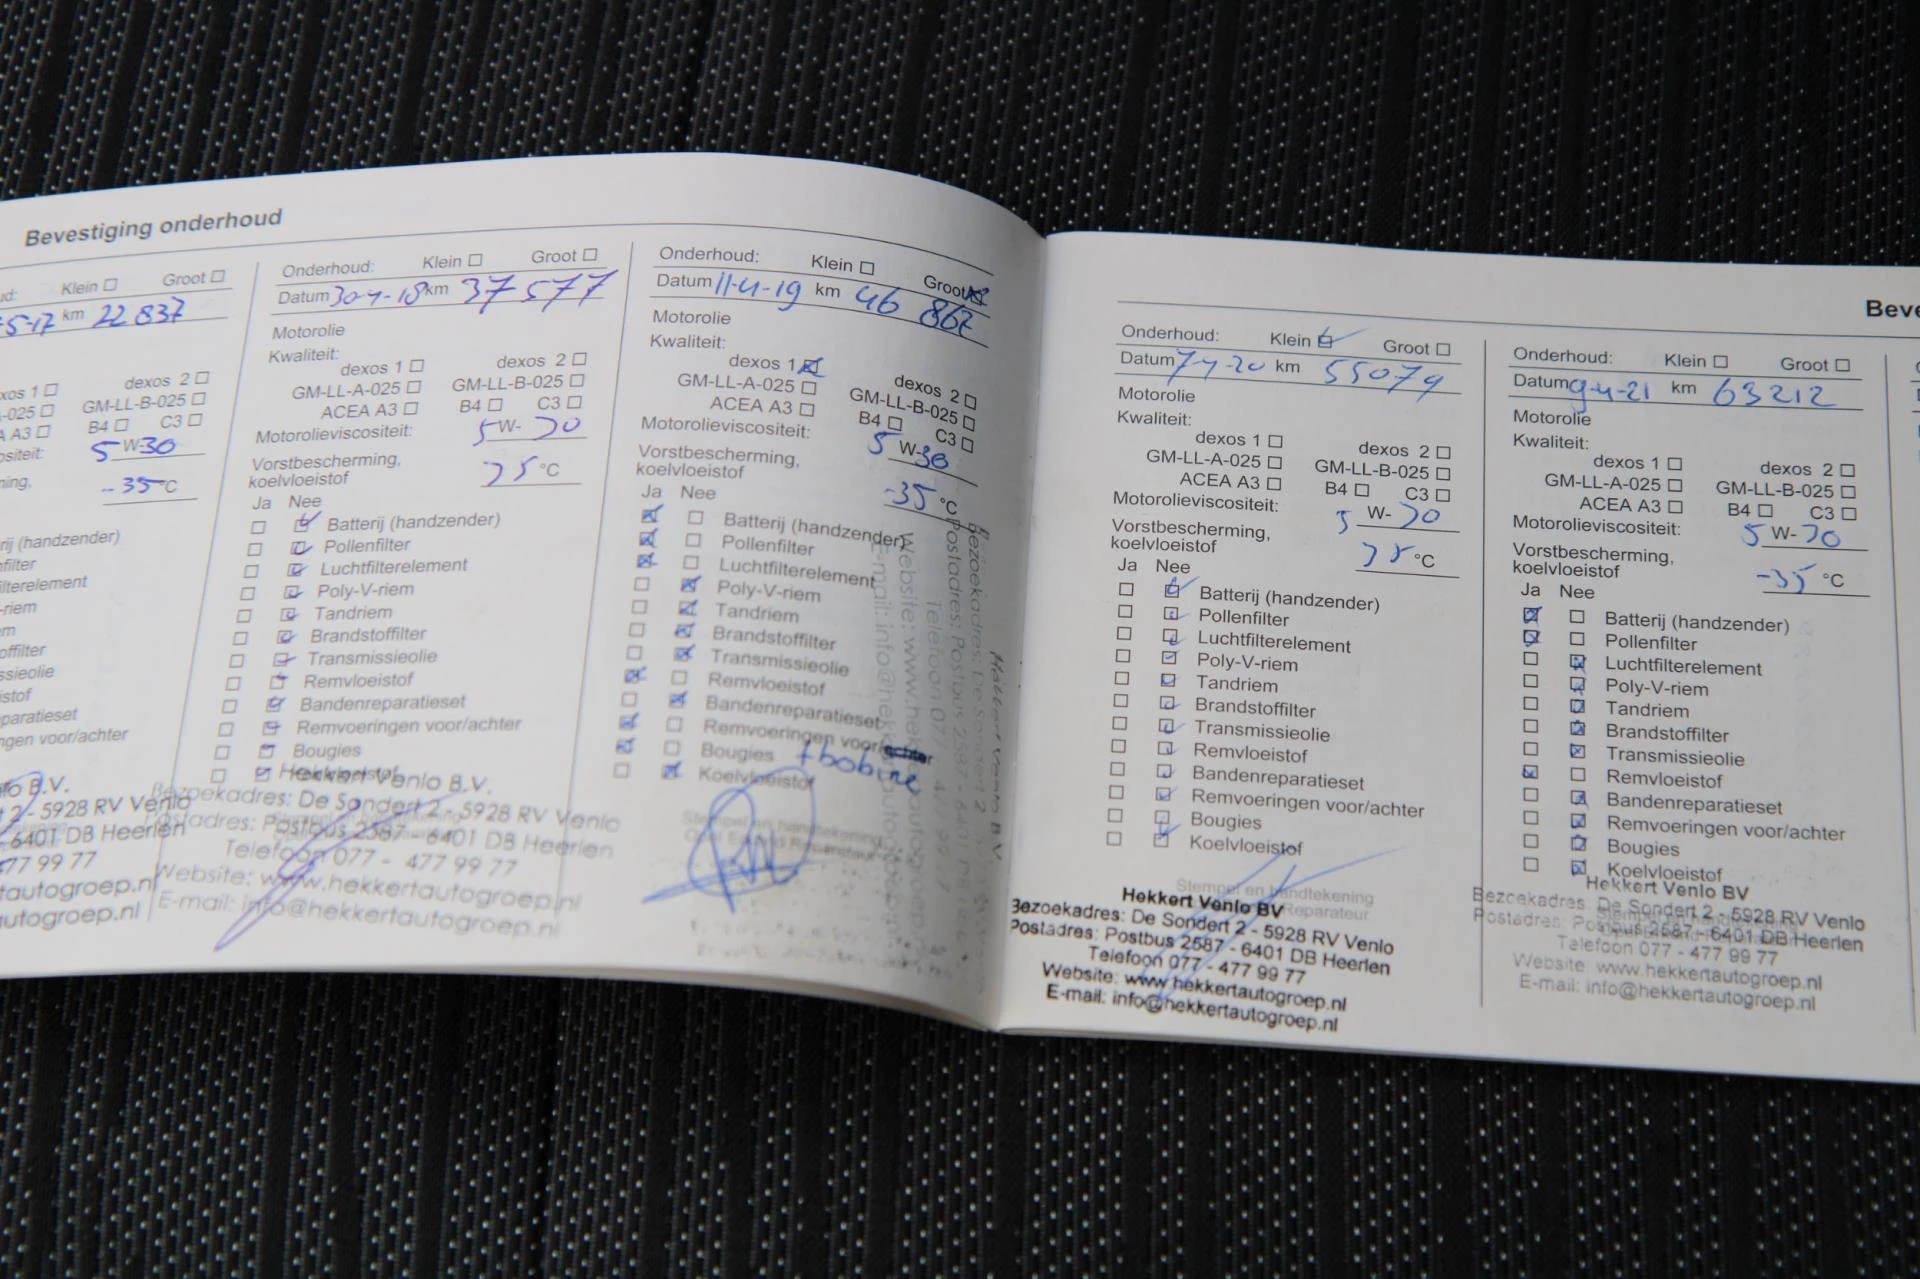 Bevestiging onderhoud
Klein Groot
5-17 km 22 837
dexos 2
GM-LL-B-025
B4 C3
5 W-30
-35 °C
(handzender)
5928 RV Venlo
6401 DB Heerlen
477 99 77
Onderhoud: Klein Groot
Datum 30-4-18 km 37 577
Motorolie
Kwaliteit:
dexos 1 dexos 2
GM-LL-A-025 GM-LL-B-025
ACEA A3 B4 C3
Motorolieviscositeit: 5 W-30
Vorstbescherming,
koelvloeistof 35 °C
Ja Nee
Batterij (handzender)
Pollenfilter
Luchtfilterelement
Poly-V-riem
Tandriem
Brandstoffilter
Transmissieolie
Remvloeistof
Bandenreparatieset
Remvoeringen voor/achter
Bougies
Koelvloeistof
Hekkert Venlo B.V.
Bezoekadres: De Sondert 2 - 5928 RV Venlo
Postadres: Postbus 2587 - 6401 DB Heerlen
Telefoon 077 - 477 99 77
Website: www.hekkertautogroep.nl
E-mail: info@hekkertautogroep.nl
Onderhoud: Klein Groot
Datum 11-4-19 km 46 867
Motorolie
Kwaliteit:
dexos 1 dexos 2
GM-LL-A-025 GM-LL-B-025
ACEA A3 B4 C3
Motorolieviscositeit: 5 W-30
Vorstbescherming,
koelvloeistof -35 °C
Ja Nee
Batterij (handzender)
Pollenfilter
Luchtfilterelement
Poly-V-riem
Tandriem
Brandstoffilter
Transmissieolie
Remvloeistof
Bandenreparatieset
Remvoeringen voor/achter
Bougies + bobine
Koelvloeistof
Stempel en handtekening
Onderhoud: Klein Groot
Datum 7-4-20 km 55079
Motorolie
Kwaliteit:
dexos 1 dexos 2
GM-LL-A-025 GM-LL-B-025
ACEA A3 B4 C3
Motorolieviscositeit: 5 W-30
Vorstbescherming,
koelvloeistof 35 °C
Ja Nee
Batterij (handzender)
Pollenfilter
Luchtfilterelement
Poly-V-riem
Tandriem
Brandstoffilter
Transmissieolie
Remvloeistof
Bandenreparatieset
Remvoeringen voor/achter
Bougies
Koelvloeistof
Stempel en handtekening
Reparateur
Hekkert Venlo BV
Bezoekadres: De Sondert 2 - 5928 RV Venlo
Postadres: Postbus 2587 - 6401 DB Heerlen
Telefoon 077 - 477 99 77
Website: www.hekkertautogroep.nl
E-mail: info@hekkertautogroep.nl
Onderhoud: Klein Groot
Datum 9-4-21 km 63212
Motorolie
Kwaliteit:
dexos 1 dexos 2
GM-LL-A-025 GM-LL-B-025
ACEA A3 B4 C3
Motorolieviscositeit: 5 W-30
Vorstbescherming,
koelvloeistof -35 °C
Ja Nee
Batterij (handzender)
Pollenfilter
Luchtfilterelement
Poly-V-riem
Tandriem
Brandstoffilter
Transmissieolie
Remvloeistof
Bandenreparatieset
Remvoeringen voor/achter
Bougies
Koelvloeistof
Hekkert Venlo BV
Bezoekadres: De Sondert 2 - 5928 RV Venlo
Postadres: Postbus 2587 - 6401 DB Heerlen
Telefoon 077 - 477 99 77
Website: www.hekkertautogroep.nl
E-mail: info@hekkertautogroep.nl